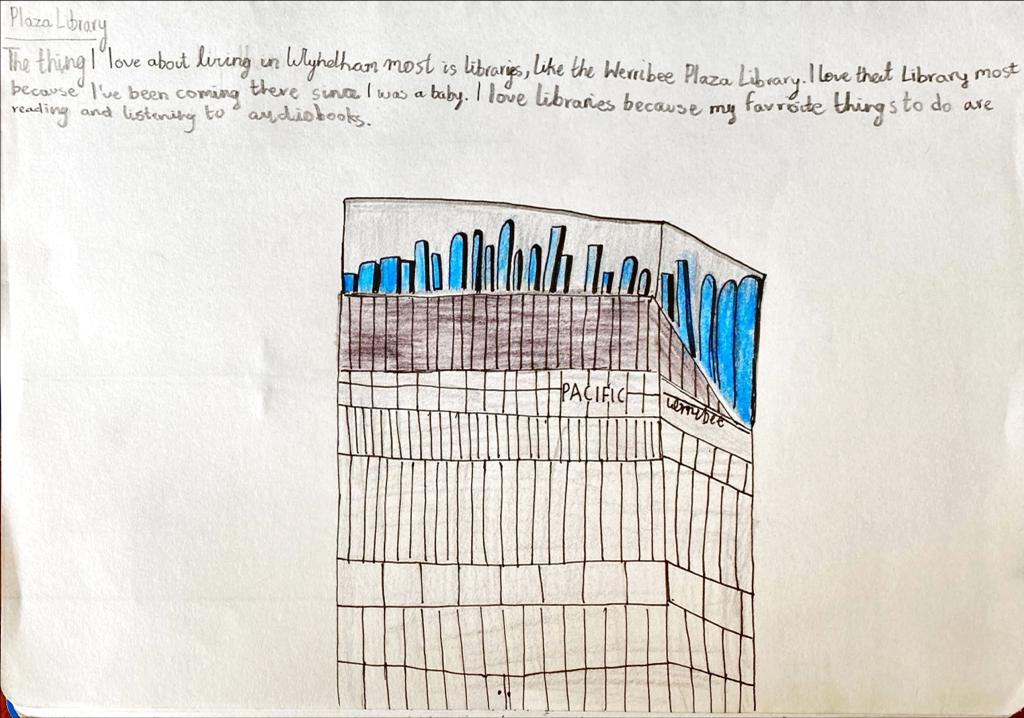 Plaza Library
The thing I love about living in Wyhdham most is libraries, like the Werribee Plaza Library. I love that Library most
because I've been coming there since I was a baby. I love libraries because my favroite things to do are
reading and listening to audiobooks.
PACIFIC
werribee